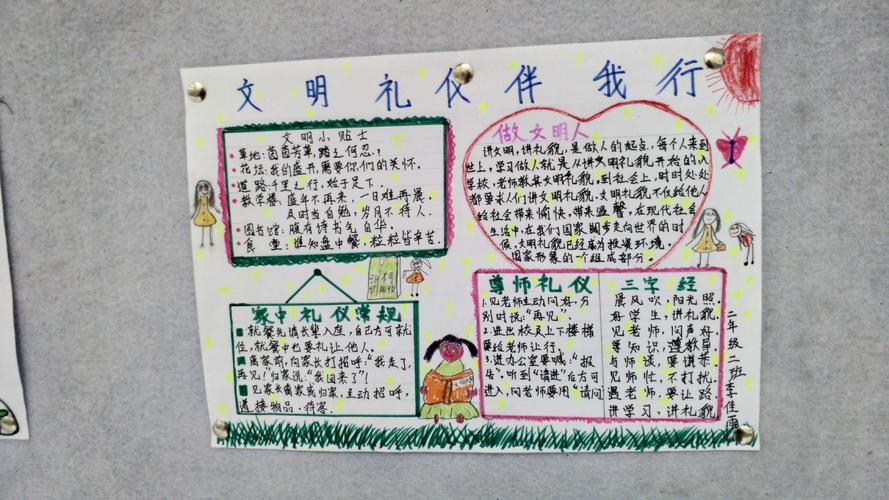 文明礼仪伴我行
文明小贴士
草地:茵茵芳草,踏之何忍?
花坛:我的盛开,需要你们的关怀。
道路:千里之行,始于足下。
教学楼:盛年不再来,一日难再晨。
及时当自勉,岁月不待人。
图书馆:腹有诗书气自华。
食堂:谁知盘中餐,粒粒皆辛苦。
做文明人
讲文明,讲礼貌,是做人的起点,每个人来到
世上,学习做人就是从讲文明礼貌开始的。入
学校,老师教其文明礼貌,到社会上,时时处处
都要求人们讲文明礼貌。文明礼貌不仅给他人
给社会带来愉快,带来温馨,在现代社会
生活中,在我们国家阔步走向世界的时
候,文明礼貌已经成为投资环境。
国家形象的一个组成部分。
家中礼仪常规
就餐先请长辈入座,自己方可就
位,就餐中也要礼让他人。
离家前,向家长打招呼:“我走了,
再见!”归家说:“我回来了”!
见家长离家或归家,主动招呼,
递接物品,待客.
尊师礼仪
1.见老师主动问好,分
别时说:“再见”。
2.进出校及上下楼梯
要给老师让行。
3.进办公室要喊:“报
告”。听到“请进”后方可
进入,问老师要用“请问
三字经
晨风吹,阳光照。
好学生,讲礼貌。
见老师,问声好。
学知识,尊教导
与师谈,要谦恭。
见师忙,不打扰。
遇老师,要让路
讲学习,讲礼貌
二年级二班李佳雨